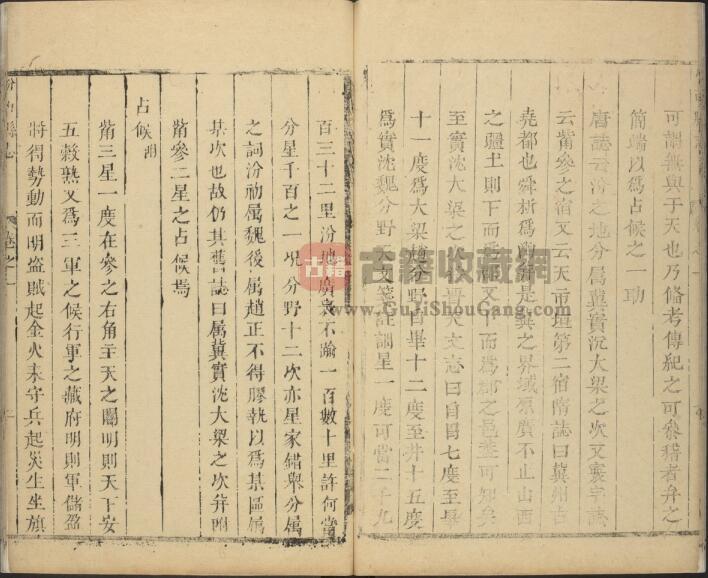 可謂無與于天也乃備考傳紀之可參稽者弁之
簡端以爲占候之一助
唐誌云汾之地分屬冀實沈大梁之次又寰宇誌
云觜參之宿又云天市垣第二宿隋誌曰冀州古
堯都也舜析爲幽并是冀之界域原廣不止山西
之疆土則下而爲又下而爲郡之邑
至實沈大梁之晉天文志曰自胃七度至畢
十一度爲大梁趙分野自畢十二度至井十五度
爲實沈魏分野天文星一度可當二千九
百三十二里汾地廣袤不踰一百數十里許何當
分星千百之一況分野十二次亦星家錯舉分屬
之詞汾初屬魏後屬趙正不得膠執以爲某區屬
某次也故仍其舊誌曰屬冀實沈大梁之次并附
觜參二星之占候焉
占候附
觜三星一度在參之右角主天之關明則天下安
五穀熟又爲三軍之候行軍之藏府明則軍儲盈
將得勢動而明盜賊起金火來守兵起災生坐旗
古籍
古籍收藏網
www.GuJiShouCang.com